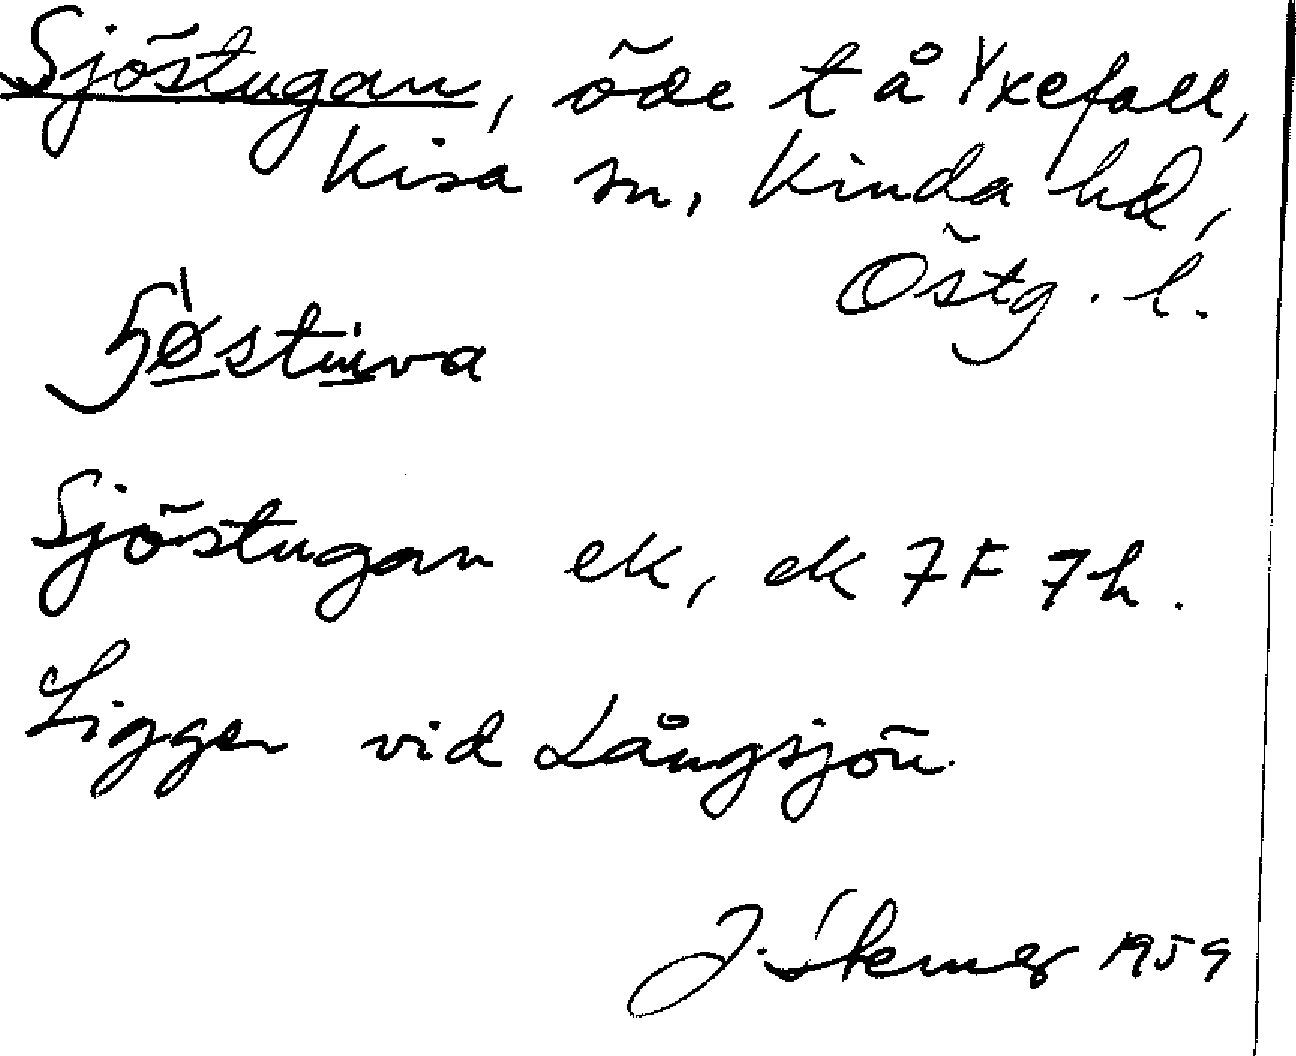 Sjöstugan, öde t å Yxefall,
Kisa sn, Kinda hd,
Östg. l.
Sjöstugan ek, ek 7F 7h.
Ligger vid Långsjön.
J. 1959